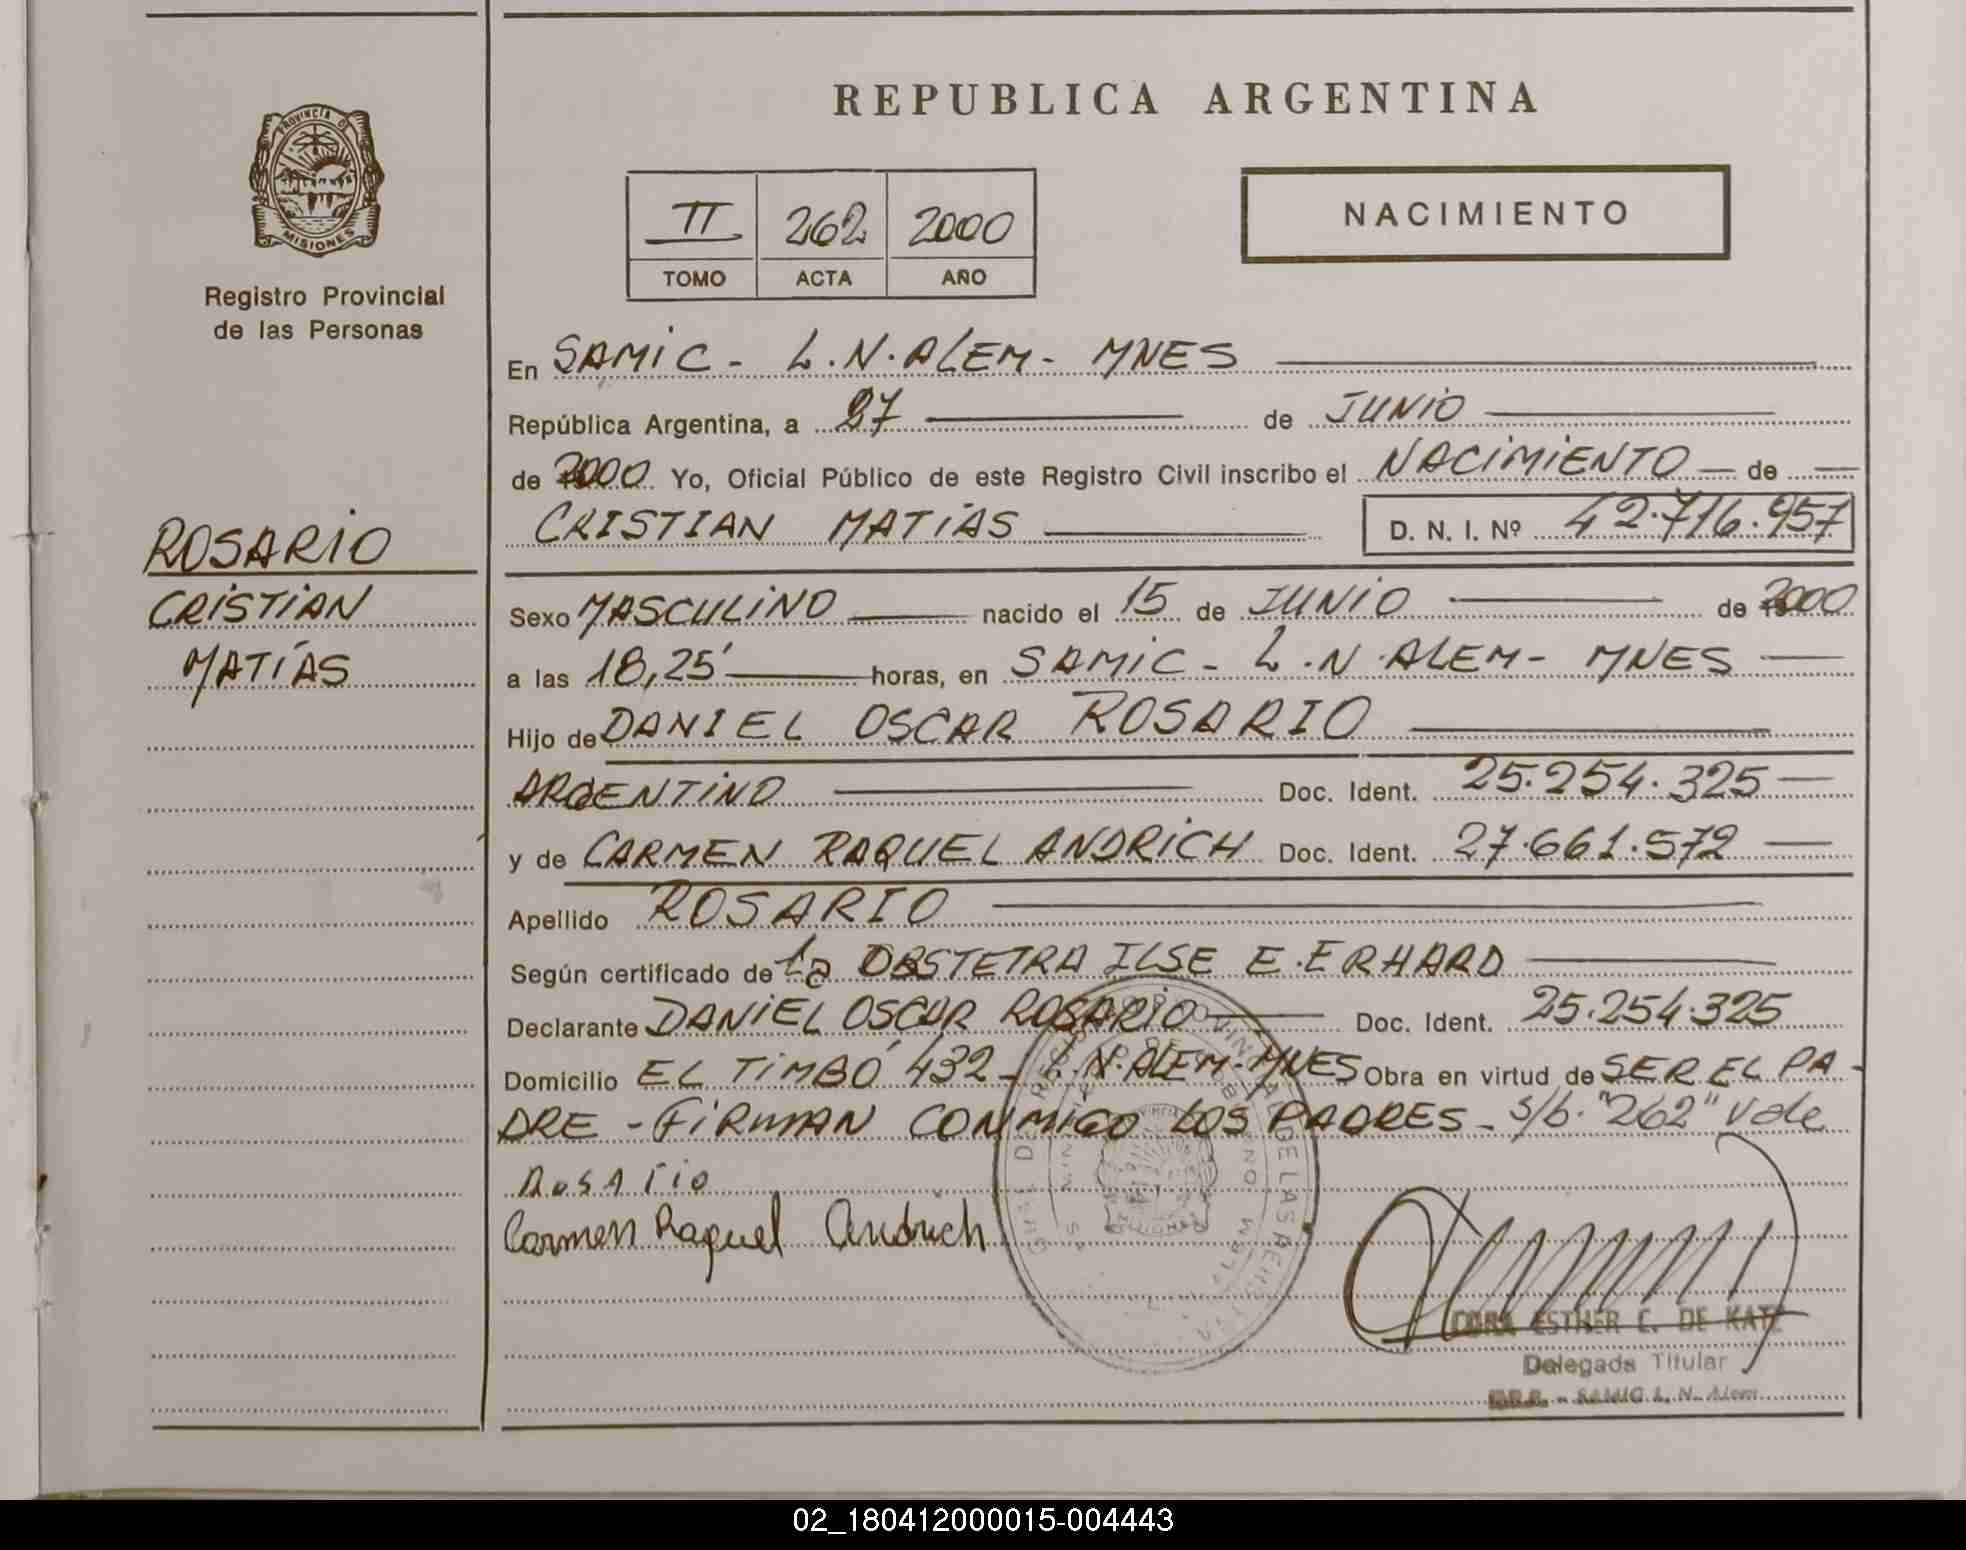 REPUBLICA ARGENTINA
PROVINCIA DE
MISIONES
Registro Provincial
de las Personas
II 262 2000
TOMO ACTA AÑO
NACIMIENTO
En SAMIC - L.N.ALEM - MNES
República Argentina, a 27 de JUNIO
de 2000 Yo, Oficial Público de este Registro Civil inscribo el NACIMIENTO de
CRISTIAN MATÍAS D. N. I. Nº 42.716.957
ROSARIO
CRISTIAN
MATÍAS
Sexo MASCULINO nacido el 15 de JUNIO de 2000
a las 18,25' horas, en SAMIC - L.N.ALEM - MNES
Hijo de DANIEL OSCAR ROSARIO
ARGENTINO Doc. Ident. 25.254.325
y de CARMEN RAQUEL ANDRICH Doc. Ident. 27.661.572
Apellido ROSARIO
Según certificado de la OBSTETRA ILSE E. ERHARD
Declarante DANIEL OSCAR ROSARIO Doc. Ident. 25.254.325
Domicilio EL TIMBÓ 432 - L.N.ALEM - MNES Obra en virtud de SER EL PA-
DRE - FIRMAN CONMIGO LOS PADRES - s/b. "262" Vale
ROSARIO
Carmen Raquel Andrich
DORA ESTHER C. DE KATZ
Delegada Titular
SAMIC L. N. Alem
02_180412000015-004443